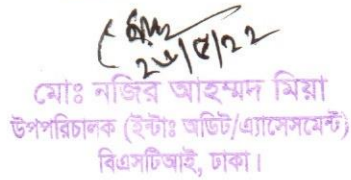 ২৬/৫/২২
মোঃ নজির আহম্মদ মিয়া
উপপরিচালক (ইন্টাঃ অডিট/এ্যাসেসমেন্ট)
বিএসটিআই, ঢাকা।